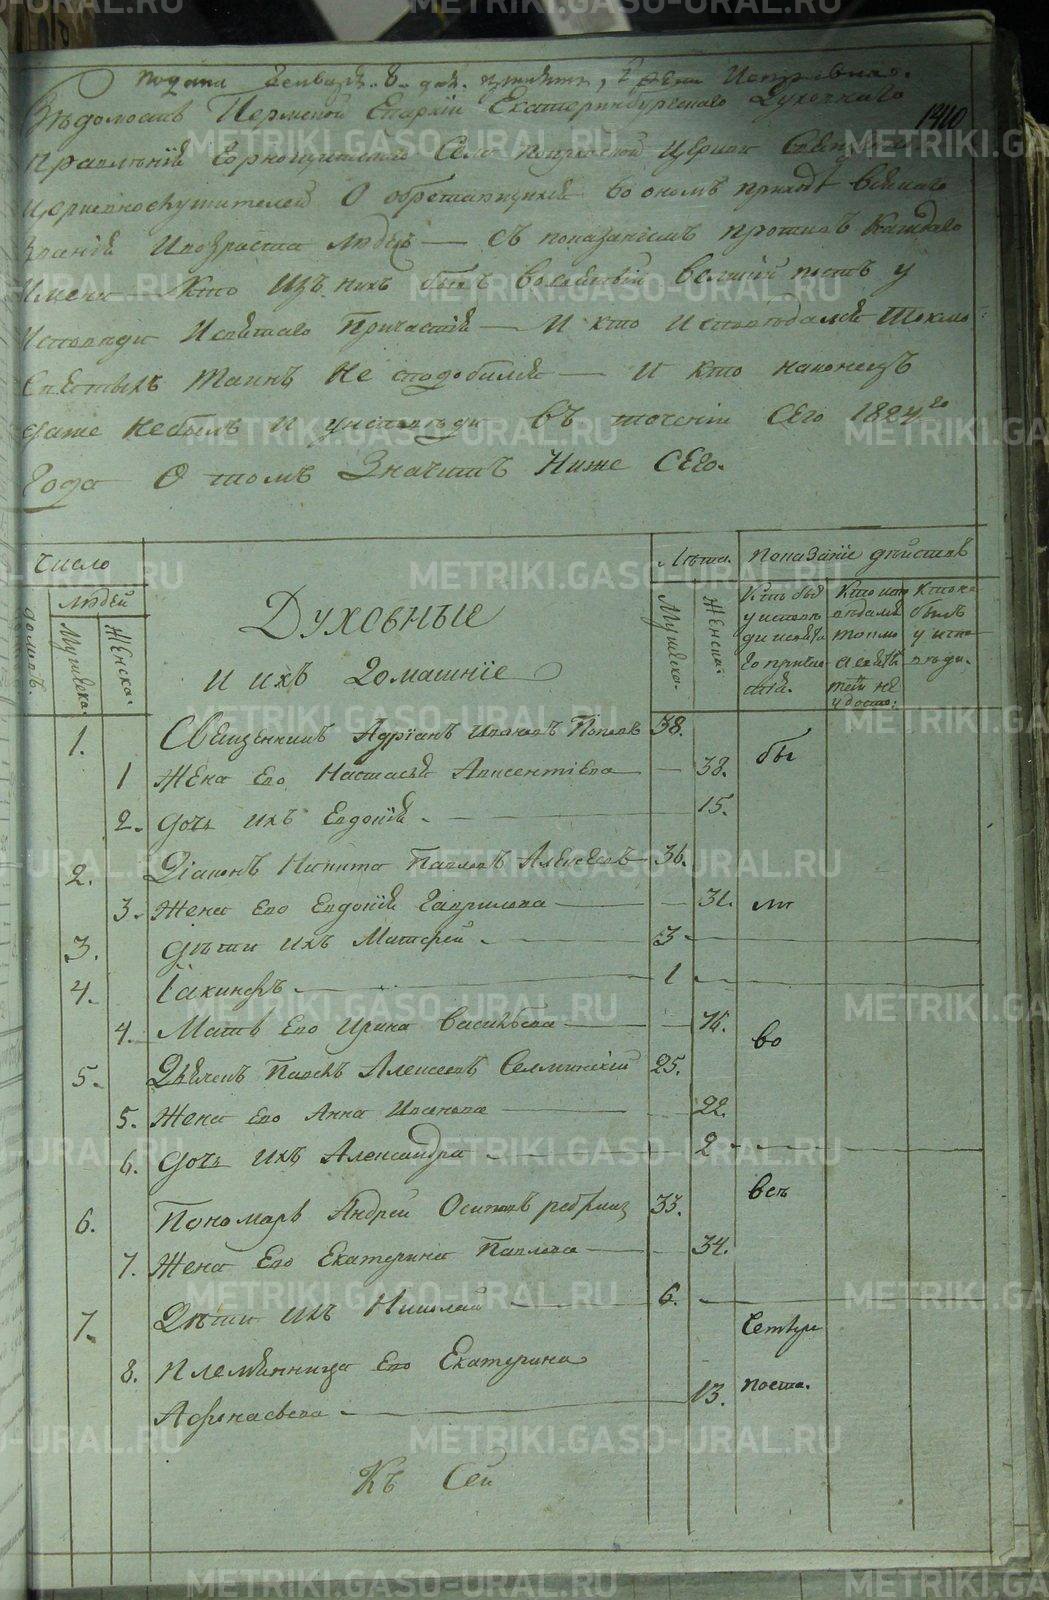 Подана Генваря 8 дня
1310
Вѣдомость Пермской Епархіи Екатеринбургскаго Духовнаго
Правленія Горнощитскаго Села Покровской Церкви Священно
Церковнослужителей О обретающихся во ономъ приходѣ всякаго
Званія И возраста людехъ — Съ показаніемъ противъ каждаго
Имени Кто Изъ нихъ былъ Во святый великій постъ у
Исповѣди И святаго Причастія — И кто Исповѣдался токмо
Святыхъ Таинъ Не сподобился — И кто наконецъ
даже Небылъ И уисповѣди Въ теченіи Сего 1824го
Года О томъ Значитъ Ниже Сего.
Число
Людей
домовъ
Мужеска.
Женска.
Духовные
и ихъ Домашніе
Лѣта.
Мужеска.
Женска.
Показаніе дѣйства
Кто был у исповѣди исвятаго причастія.
Кто исповѣдался токмо а святыхъ тайн не удосто:
Кто не былъ у исповѣди.
1. Священникъ Адріанъ Ивановъ Поповъ 38.
1 Жена Его Настасья Авксентіева — 38. бы
2. дочь ихъ Евдокія — 15.
2. Діаконъ Никита Павловъ Алексеевъ 36.
3. Жена Его Евдокія Гаврилова — 31. ли
3. дѣти ихъ Матфей — 3
4. Іакинфъ — 1
4. Мать Его Ирина Васильева — 74. во
5. Дьячекъ Павелъ Алексеевъ Селминскій 25.
5. Жена Его Анна Иванова — 22.
6. Дочь Ихъ Александра — 2
6. Пономарь Андрей Осиповъ 33. всѣ
7. Жена Его Екатерина Павлова — 34.
7. Дѣти ихъ Николай — 6.
Четыре
8. Племянница Его Екатерина
Афонасьева — 13. поста.
Къ Сей
METRIKI.GASO-URAL.RU